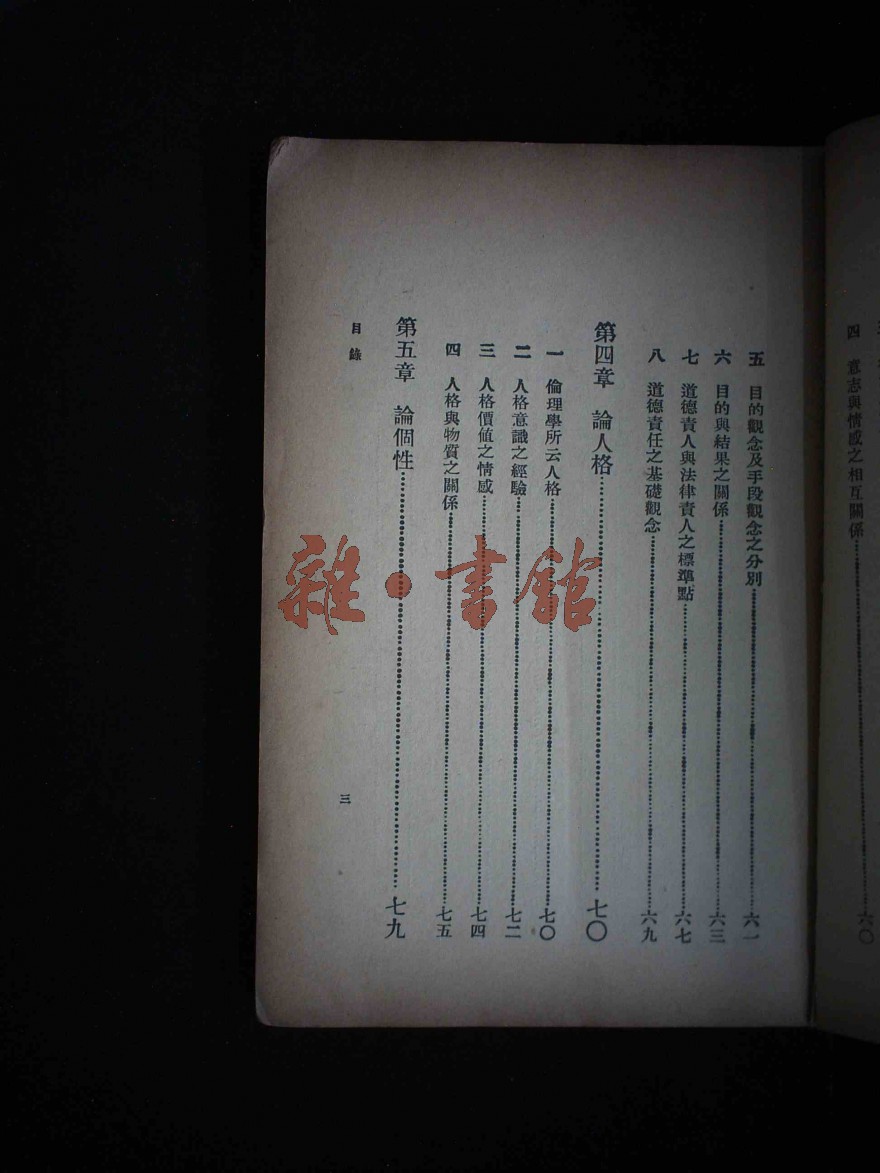 四　意志與情感之相互關係……六〇
五　目的觀念及手段觀念之分別……六一
六　目的與結果之關係……六三
七　道德責人與法律責人之標準點……六七
八　道德責任之基礎觀念……六九
第四章　論人格……七〇
一　倫理學所云人格……七〇
二　人格意識之經驗……七二
三　人格價値之情感……七四
四　人格與物質之關係……七五
第五章　論個性……七九
目錄
三
雜·書館